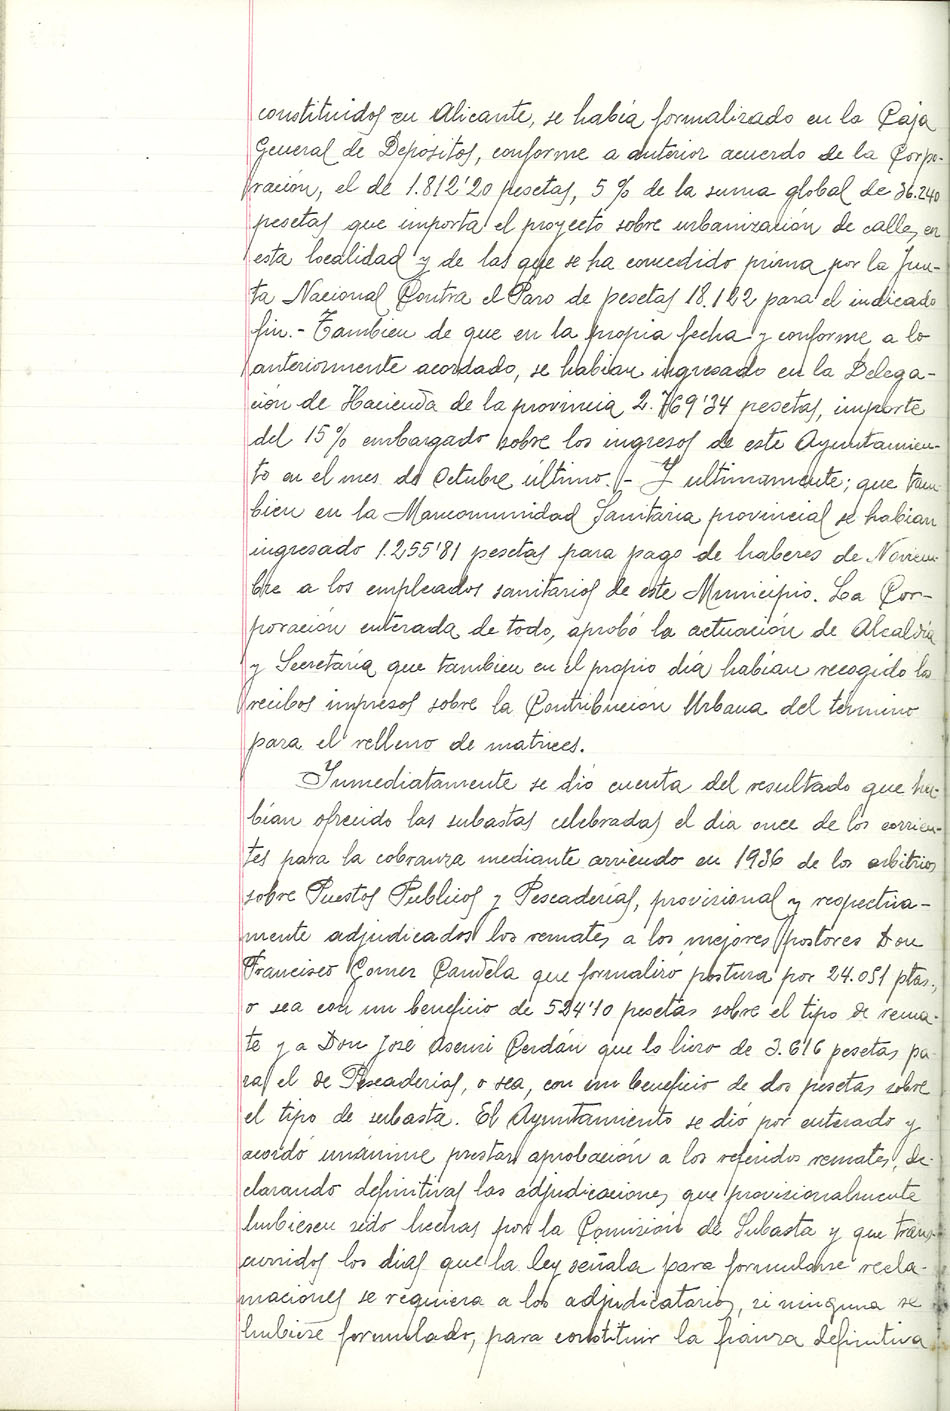 constituidos en Alicante, se había formalizado en la Caja
General de Depósitos, conforme a anterior acuerdo de la Corpo-
ración, el de 1.812'20 pesetas, 5 % de la suma global de 36.240
pesetas que importa el proyecto sobre urbanización de calles en
esta localidad y de las que se ha concedido prima por la Jun-
ta Nacional Contra el Paro de pesetas 18.122 para el indicado
fin.- Tambien de que en la propia fecha y conforme a lo
anteriormente acordado, se habian ingresado en la Delega-
ción de Hacienda de la provincia 2.769'34 pesetas, importe
del 15 % embargado sobre los ingresos de este Ayuntamien-
to en el mes de Octubre último.- Y ultimamente; que tam-
bien en la Mancomunidad Sanitaria provincial se habian
ingresado 1.255'81 pesetas para pago de haberes de Noviem-
bre a los empleados sanitarios de este Municipio. La Cor-
poración enterada de todo, aprobó la actuación de Alcaldía
y Secretaría que tambien en el propio día habían recogido los
recibos impresos sobre la Contribución Urbana del término
para el relleno de matrices.
Inmediatamente se dió cuenta del resultado que ha-
bían ofrecido las subastas celebradas el día once de los corrien-
tes para la cobranza mediante arriendo en 1936 de los arbitrios
sobre Puestos Publicos y Pescaderías, provisional y respectiva-
mente adjudicados los remates a los mejores postores Don
Francisco Gomez Candela que formalizó postura por 24.051 ptas.,
o sea con un beneficio de 524'10 pesetas sobre el tipo de rema-
te y a Don José Asensi Cerdán que lo hizo de 3.616 pesetas pa-
ra el de Pescaderías, o sea, con un beneficio de dos pesetas sobre
el tipo de subasta. El Ayuntamiento se dió por enterado y
acordó unánime prestar aprobación a los referidos remates, de-
clarando definitivas las adjudicaciones que provisionalmente
hubiesen sido hechas por la Comisión de Subasta y que trans-
curridos los días que la ley señala para formularse recla-
maciones se requiera a los adjudicatarios, si ninguna se
hubiese formulado, para constituir la fianza definitiva